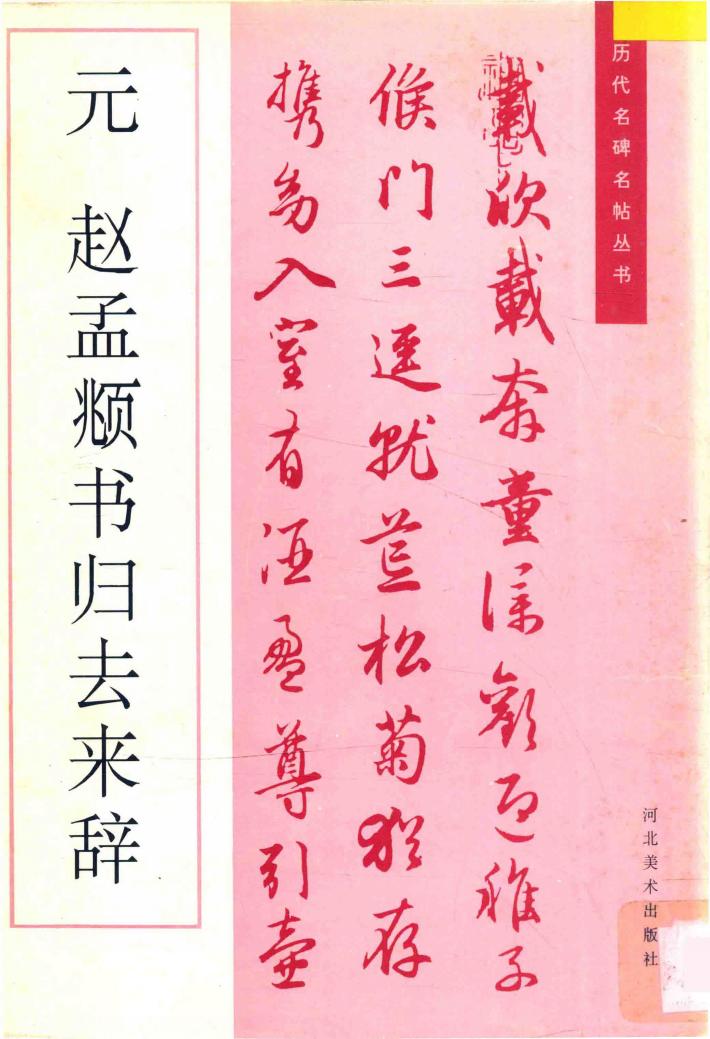 历代名碑名帖丛书
河北美术出版社
載欣載奔童僕歡迎稚子
候門三逕就荒松菊猶存
携幼入室有酒盈尊引壺
元 赵孟𫖯书归去来辞